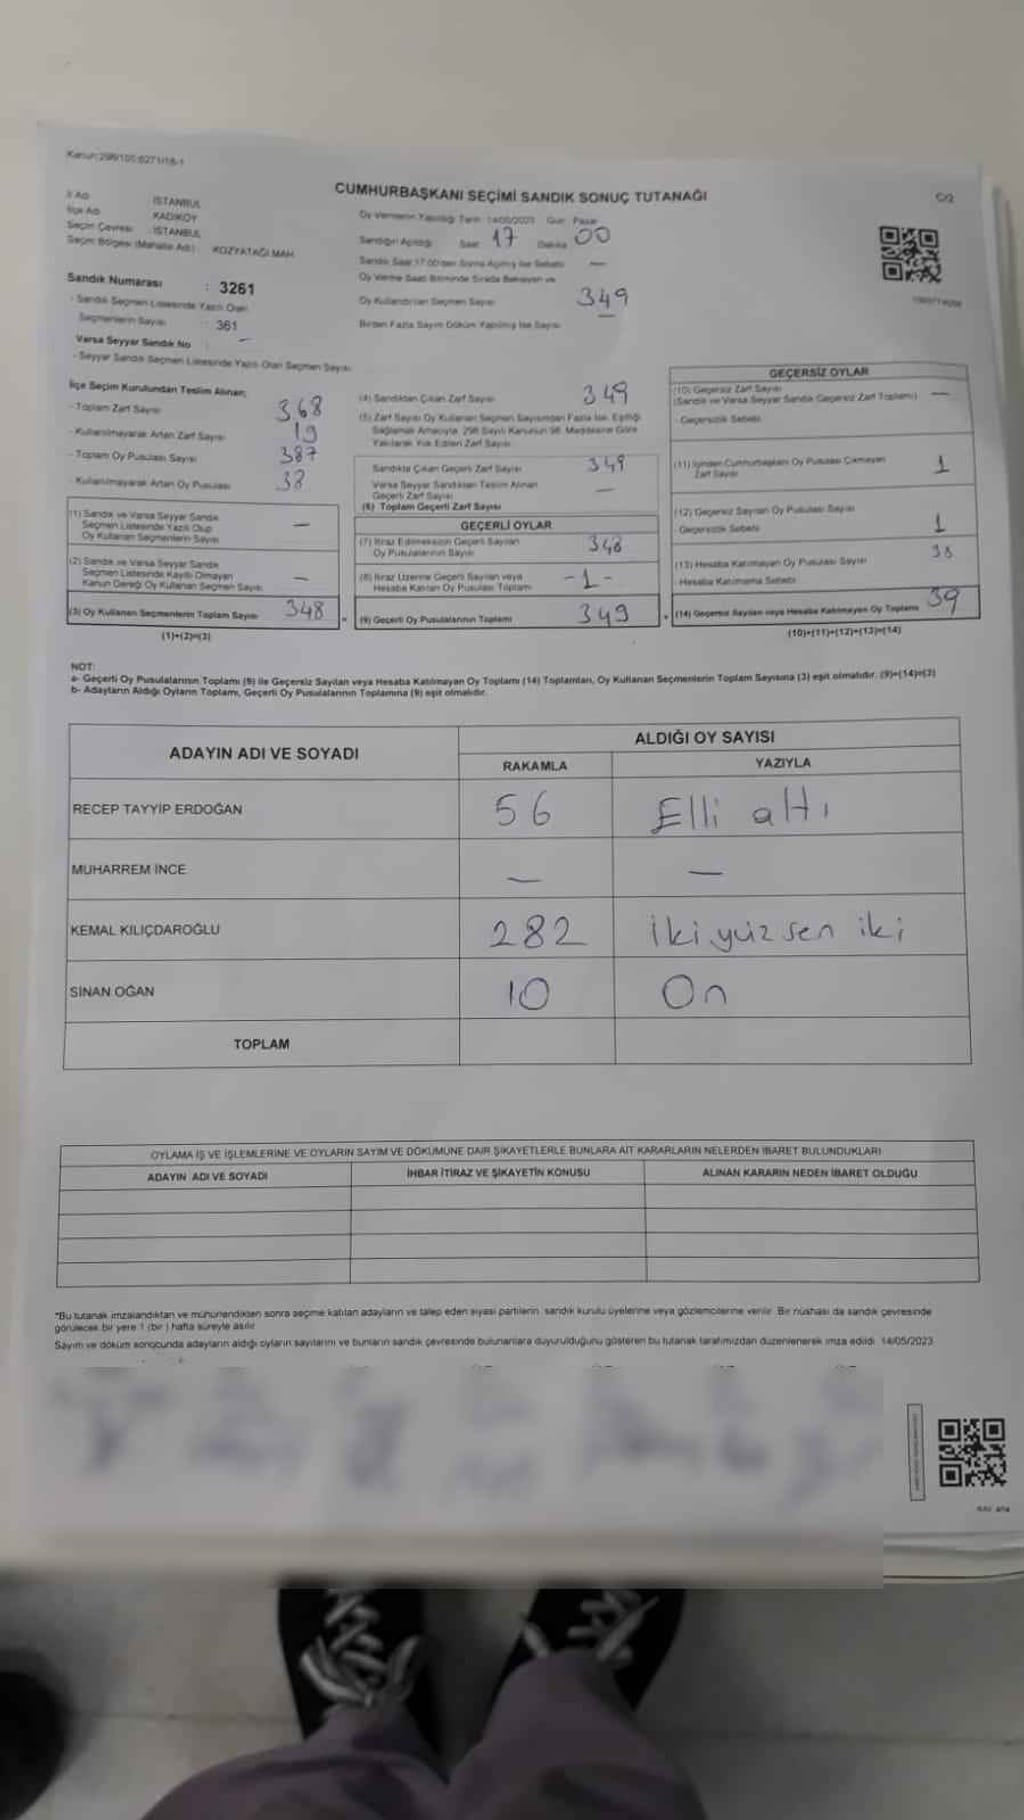 Kanun:298/105;6271/18-1
CUMHURBAŞKANI SEÇİMİ SANDIK SONUÇ TUTANAĞI
C/2
İl Adı İSTANBUL
İlçe Adı KADIKÖY
Seçim Çevresi : İSTANBUL
Seçim Bölgesi (Mahalle Adı) : KOZYATAĞI MAH.
Sandık Numarası : 3261
- Sandık Seçmen Listesinde Yazılı Olan
Seçmenlerin Sayısı : 361
Varsa Seyyar Sandık No : —
- Seyyar Sandık Seçmen Listesinde Yazılı Olan Seçmen Sayısı
Oy Vermenin Yapıldığı Tarih: 14/05/2023 Gün: Pazar
Sandığın Açıldığı Saat 17 Dakika 00
Sandık Saat 17.00'den Sonra Açılmış İse Sebebi —
Oy Verme Saati Bitiminde Sırada Bekleyen ve
Oy Kullandırılan Seçmen Sayısı 349
Birden Fazla Sayım Döküm Yapılmış İse Sayısı —
İlçe Seçim Kurulundan Teslim Alınan;
- Toplam Zarf Sayısı 368
- Kullanılmayarak Artan Zarf Sayısı 19
- Toplam Oy Pusulası Sayısı 387
- Kullanılmayarak Artan Oy Pusulası 38
(1) Sandık ve Varsa Seyyar Sandık
Seçmen Listesinde Yazılı Olup
Oy Kullanan Seçmenlerin Sayısı —
(2) Sandık ve Varsa Seyyar Sandık
Seçmen Listesinde Kayıtlı Olmayan
Kanun Gereği Oy Kullanan Seçmen Sayısı —
(3) Oy Kullanan Seçmenlerin Toplam Sayısı 348
(1)+(2)=(3)
(4) Sandıktan Çıkan Zarf Sayısı 349
(5) Zarf Sayısı Oy Kullanan Seçmen Sayısından Fazla İse, Eşitliği
Sağlamak Amacıyla, 298 Sayılı Kanunun 98. Maddesine Göre
Yakılarak Yok Edilen Zarf Sayısı
Sandıkta Çıkan Geçerli Zarf Sayısı 349
Varsa Seyyar Sandıktan Teslim Alınan
Geçerli Zarf Sayısı —
(6) Toplam Geçerli Zarf Sayısı
GEÇERLİ OYLAR
(7) İtiraz Edilmeksizin Geçerli Sayılan
Oy Pusulalarının Sayısı 348
(8) İtiraz Üzerine Geçerli Sayılan veya
Hesaba Katılan Oy Pusulası Toplamı -1-
(9) Geçerli Oy Pusulalarının Toplamı 349
GEÇERSİZ OYLAR
(10) Geçersiz Zarf Sayısı
(Sandık ve Varsa Seyyar Sandık Geçersiz Zarf Toplamı) —
- Geçersizlik Sebebi
(11) İçinden Cumhurbaşkanı Oy Pusulası Çıkmayan
Zarf Sayısı 1
(12) Geçersiz Sayılan Oy Pusulası Sayısı 1
- Geçersizlik Sebebi
(13) Hesaba Katılmayan Oy Pusulası Sayısı 38
- Hesaba Katılmama Sebebi
(14) Geçersiz Sayılan veya Hesaba Katılmayan Oy Toplamı 39
(10)+(11)+(12)+(13)=(14)
NOT:
a- Geçerli Oy Pusulalarının Toplamı (9) ile Geçersiz Sayılan veya Hesaba Katılmayan Oy Toplamı (14) Toplamları, Oy Kullanan Seçmenlerin Toplam Sayısına (3) eşit olmalıdır. (9)+(14)=(3)
b- Adayların Aldığı Oyların Toplamı, Geçerli Oy Pusulalarının Toplamına (9) eşit olmalıdır.
ADAYIN ADI VE SOYADI
ALDIĞI OY SAYISI
RAKAMLA YAZIYLA
RECEP TAYYİP ERDOĞAN 56 Elli altı
MUHARREM İNCE — —
KEMAL KILIÇDAROĞLU 282 İki yüz sen iki
SİNAN OĞAN 10 On
TOPLAM
OYLAMA İŞ VE İŞLEMLERİNE VE OYLARIN SAYIM VE DÖKÜMÜNE DAİR ŞİKAYETLERLE BUNLARA AİT KARARLARIN NELERDEN İBARET BULUNDUKLARI
ADAYIN ADI VE SOYADI İHBAR İTİRAZ VE ŞİKAYETİN KONUSU ALINAN KARARIN NEDEN İBARET OLDUĞU
*Bu tutanak imzalandıktan ve mühürlendikten sonra seçime katılan adayların ve talep eden siyasi partilerin, sandık kurulu üyelerine veya gözlemcilerine verilir. Bir nüshası da sandık çevresinde
görülecek bir yere 1 (bir ) hafta süreyle asılır.
Sayım ve döküm sonucunda adayların aldığı oyların sayılarını ve bunların sandık çevresinde bulunanlara duyurulduğunu gösteren bu tutanak tarafımızdan düzenlenerek imza edildi. 14/05/2023